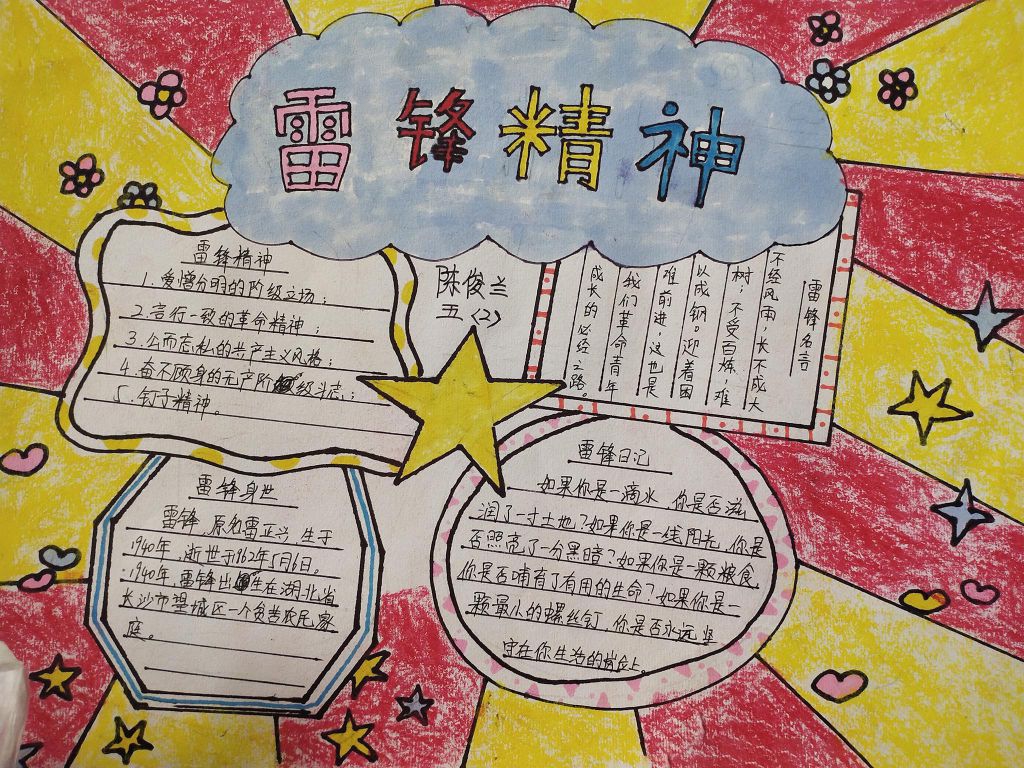 雷锋精神
雷锋精神
1.爱憎分明的阶级立场；
2.言行一致的革命精神；
3.公而忘私的共产主义风格；
4.奋不顾身的无产阶级斗志；
5.钉子精神。
陈俊兰
五〈2〉
雷锋名言
不经风雨，长不成大
树；不受百炼，难
以成钢。迎着困
难前进，这也是
我们革命青年
成长的必经之路。
雷锋身世
雷锋，原名雷正兴，生于
1940年，逝世于1962年5月6日。
1940年，雷锋出生在湖北省
长沙市望城区一个贫苦农民家
庭。
雷锋日记
如果你是一滴水，你是否滋
润了一寸土地？如果你是一线阳光，你是
否照亮了一分黑暗？如果你是一颗粮食
你是否哺育了有用的生命？如果你是一
颗最小的螺丝钉，你是否永远坚
守在你生活的岗位上。